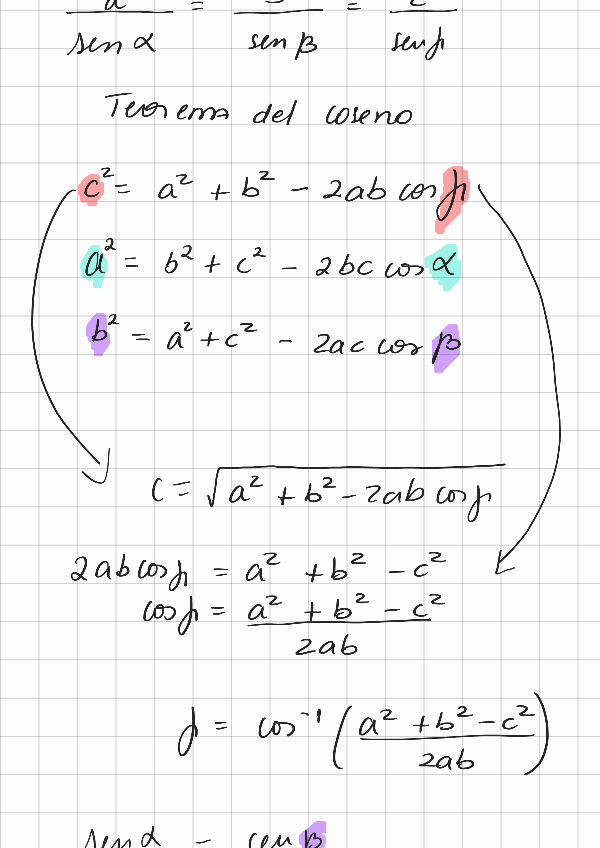 a/sen α = /sen β = c/sen γ
Teorema del coseno
c² = a² + b² − 2ab cos γ
a² = b² + c² − 2bc cos α
b² = a² + c² − 2ac cos β
c = √(a² + b² − 2ab cos γ)
2ab cos γ = a² + b² − c²
cos γ = (a² + b² − c²)/2ab
γ = cos⁻¹((a² + b² − c²)/2ab)
sen α − sen β